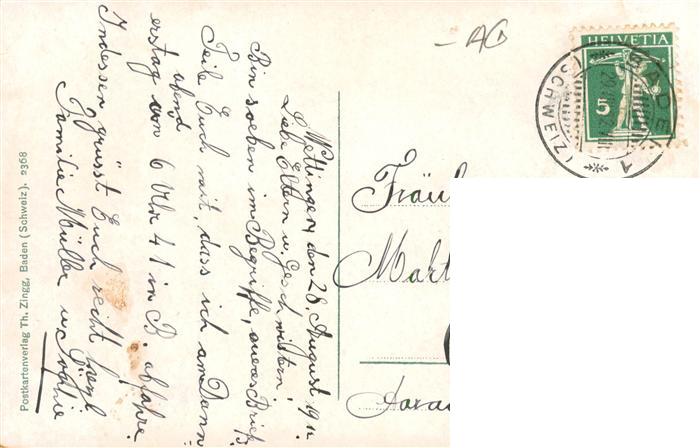 — AG
HELVETIA
5
BADEN
1
(SCHWEIZ)
Wettingen, den 28. August 1911.
Liebe Eltern u. Geschwistern!
Bin soeben im Begriffe, euer Brief
Teile Euch mit, dass ich am Donn
erstag abend an 6 Uhr 41 in B. abfahre.
Indessen grüsst Euch recht herzl
Familie Müller u. Sophie
Fräul
Mart
Aara
Postkartenverlag Th. Zingg, Baden (Schweiz). 2368